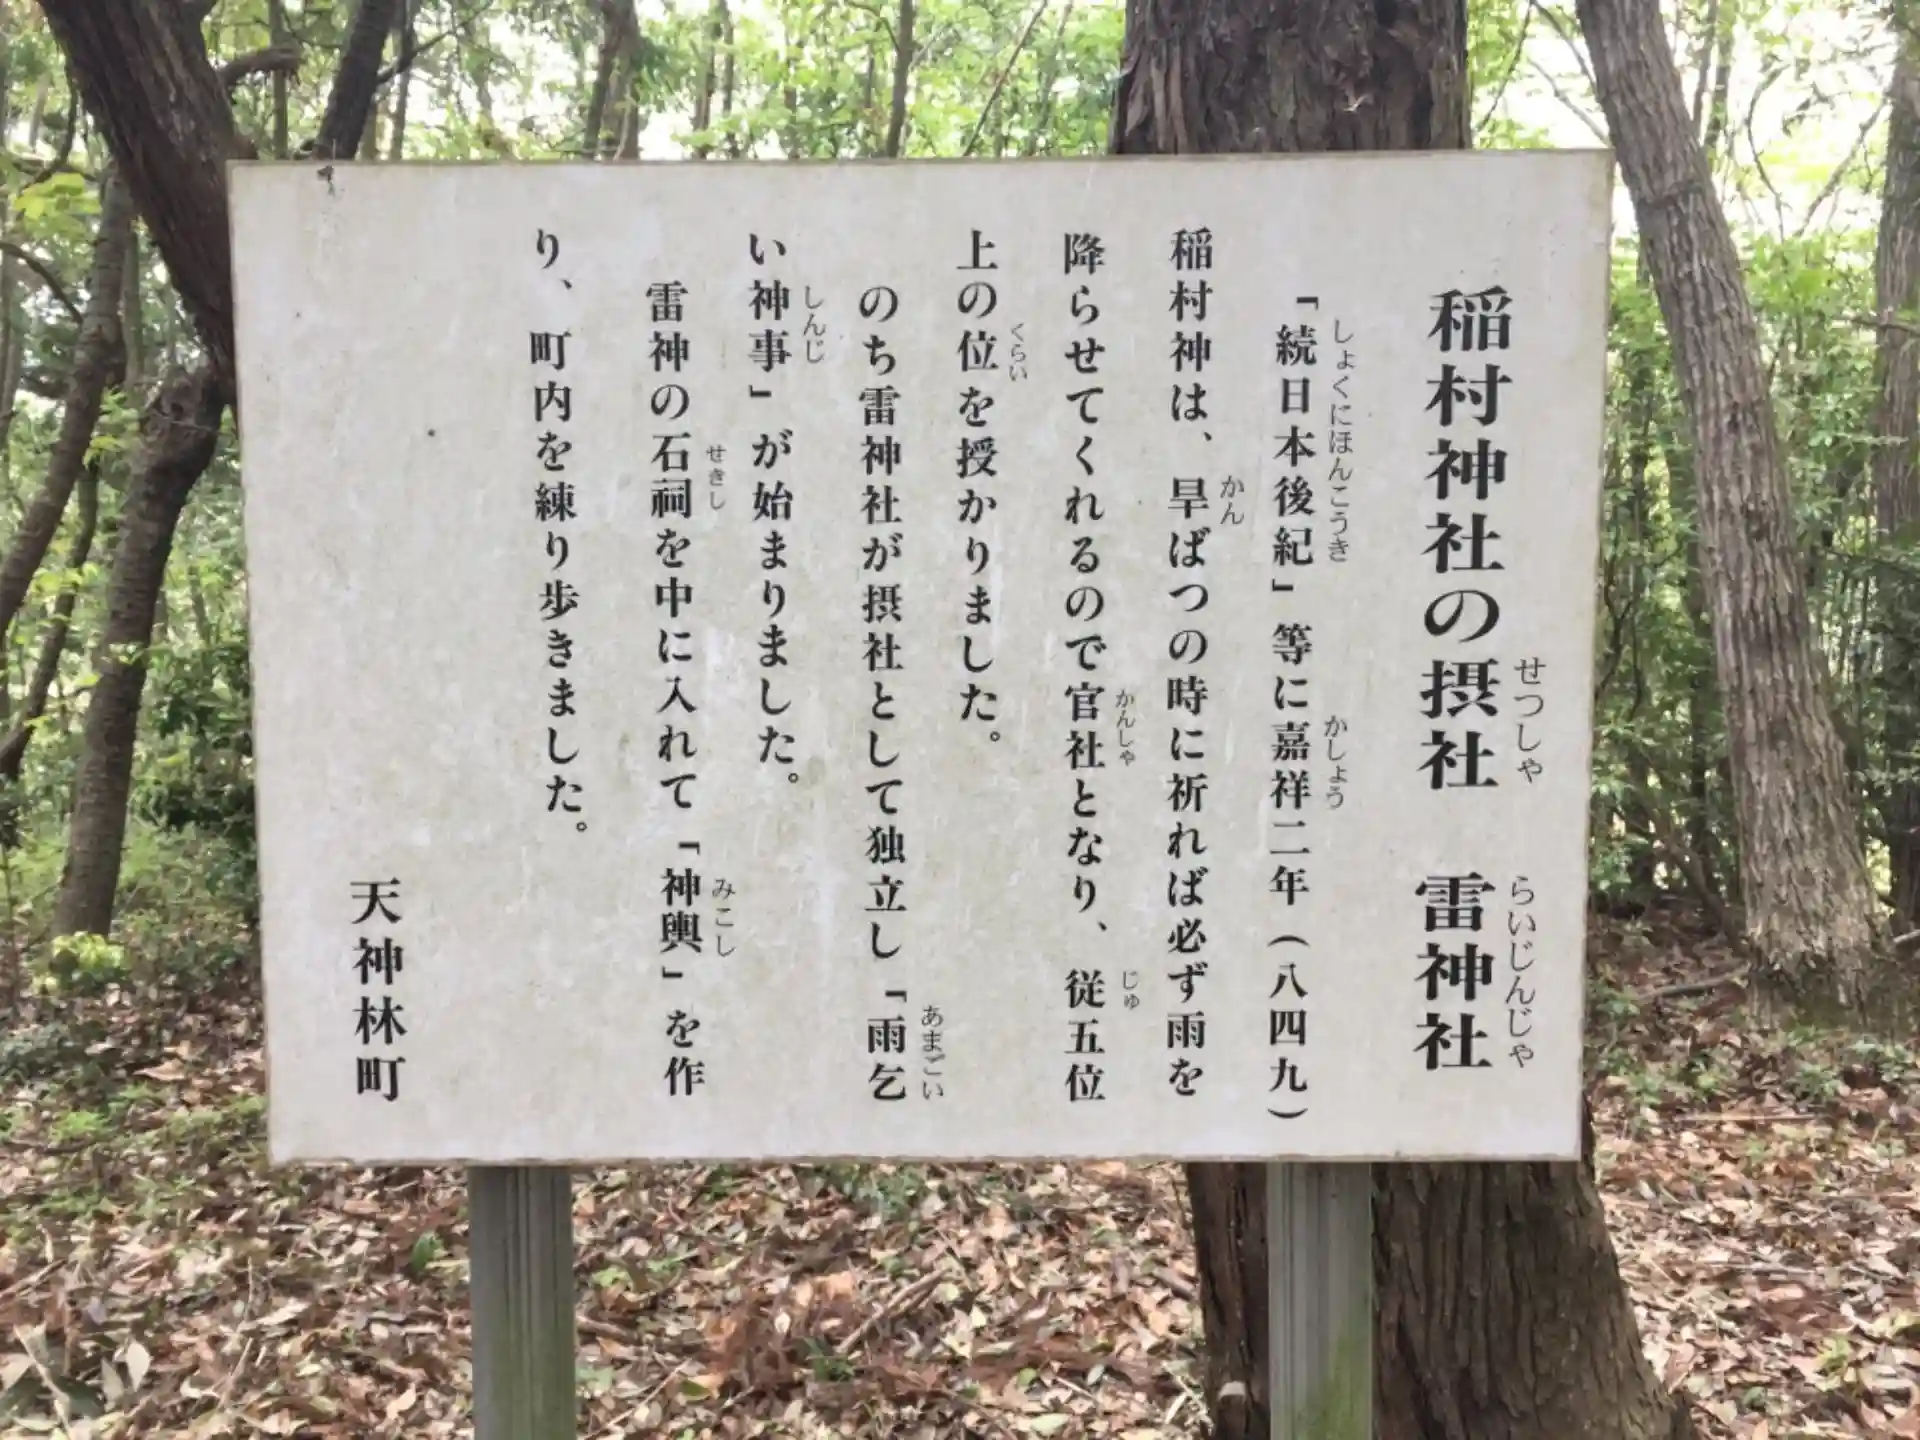 稲村神社の摂社　雷神社
せつしゃ　らいじんじゃ
「続日本後紀」等に嘉祥二年（八四九）
しょくにほんこうき　かしょう
稲村神は、旱ばつの時に祈れば必ず雨を
かん
降らせてくれるので官社となり、従五位
かんしゃ　じゅ
上の位を授かりました。
くらい
のち雷神社が摂社として独立し「雨乞
あまごい
い神事」が始まりました。
しんじ
雷神の石祠を中に入れて「神輿」を作
せきし　みこし
り、町内を練り歩きました。
天神林町